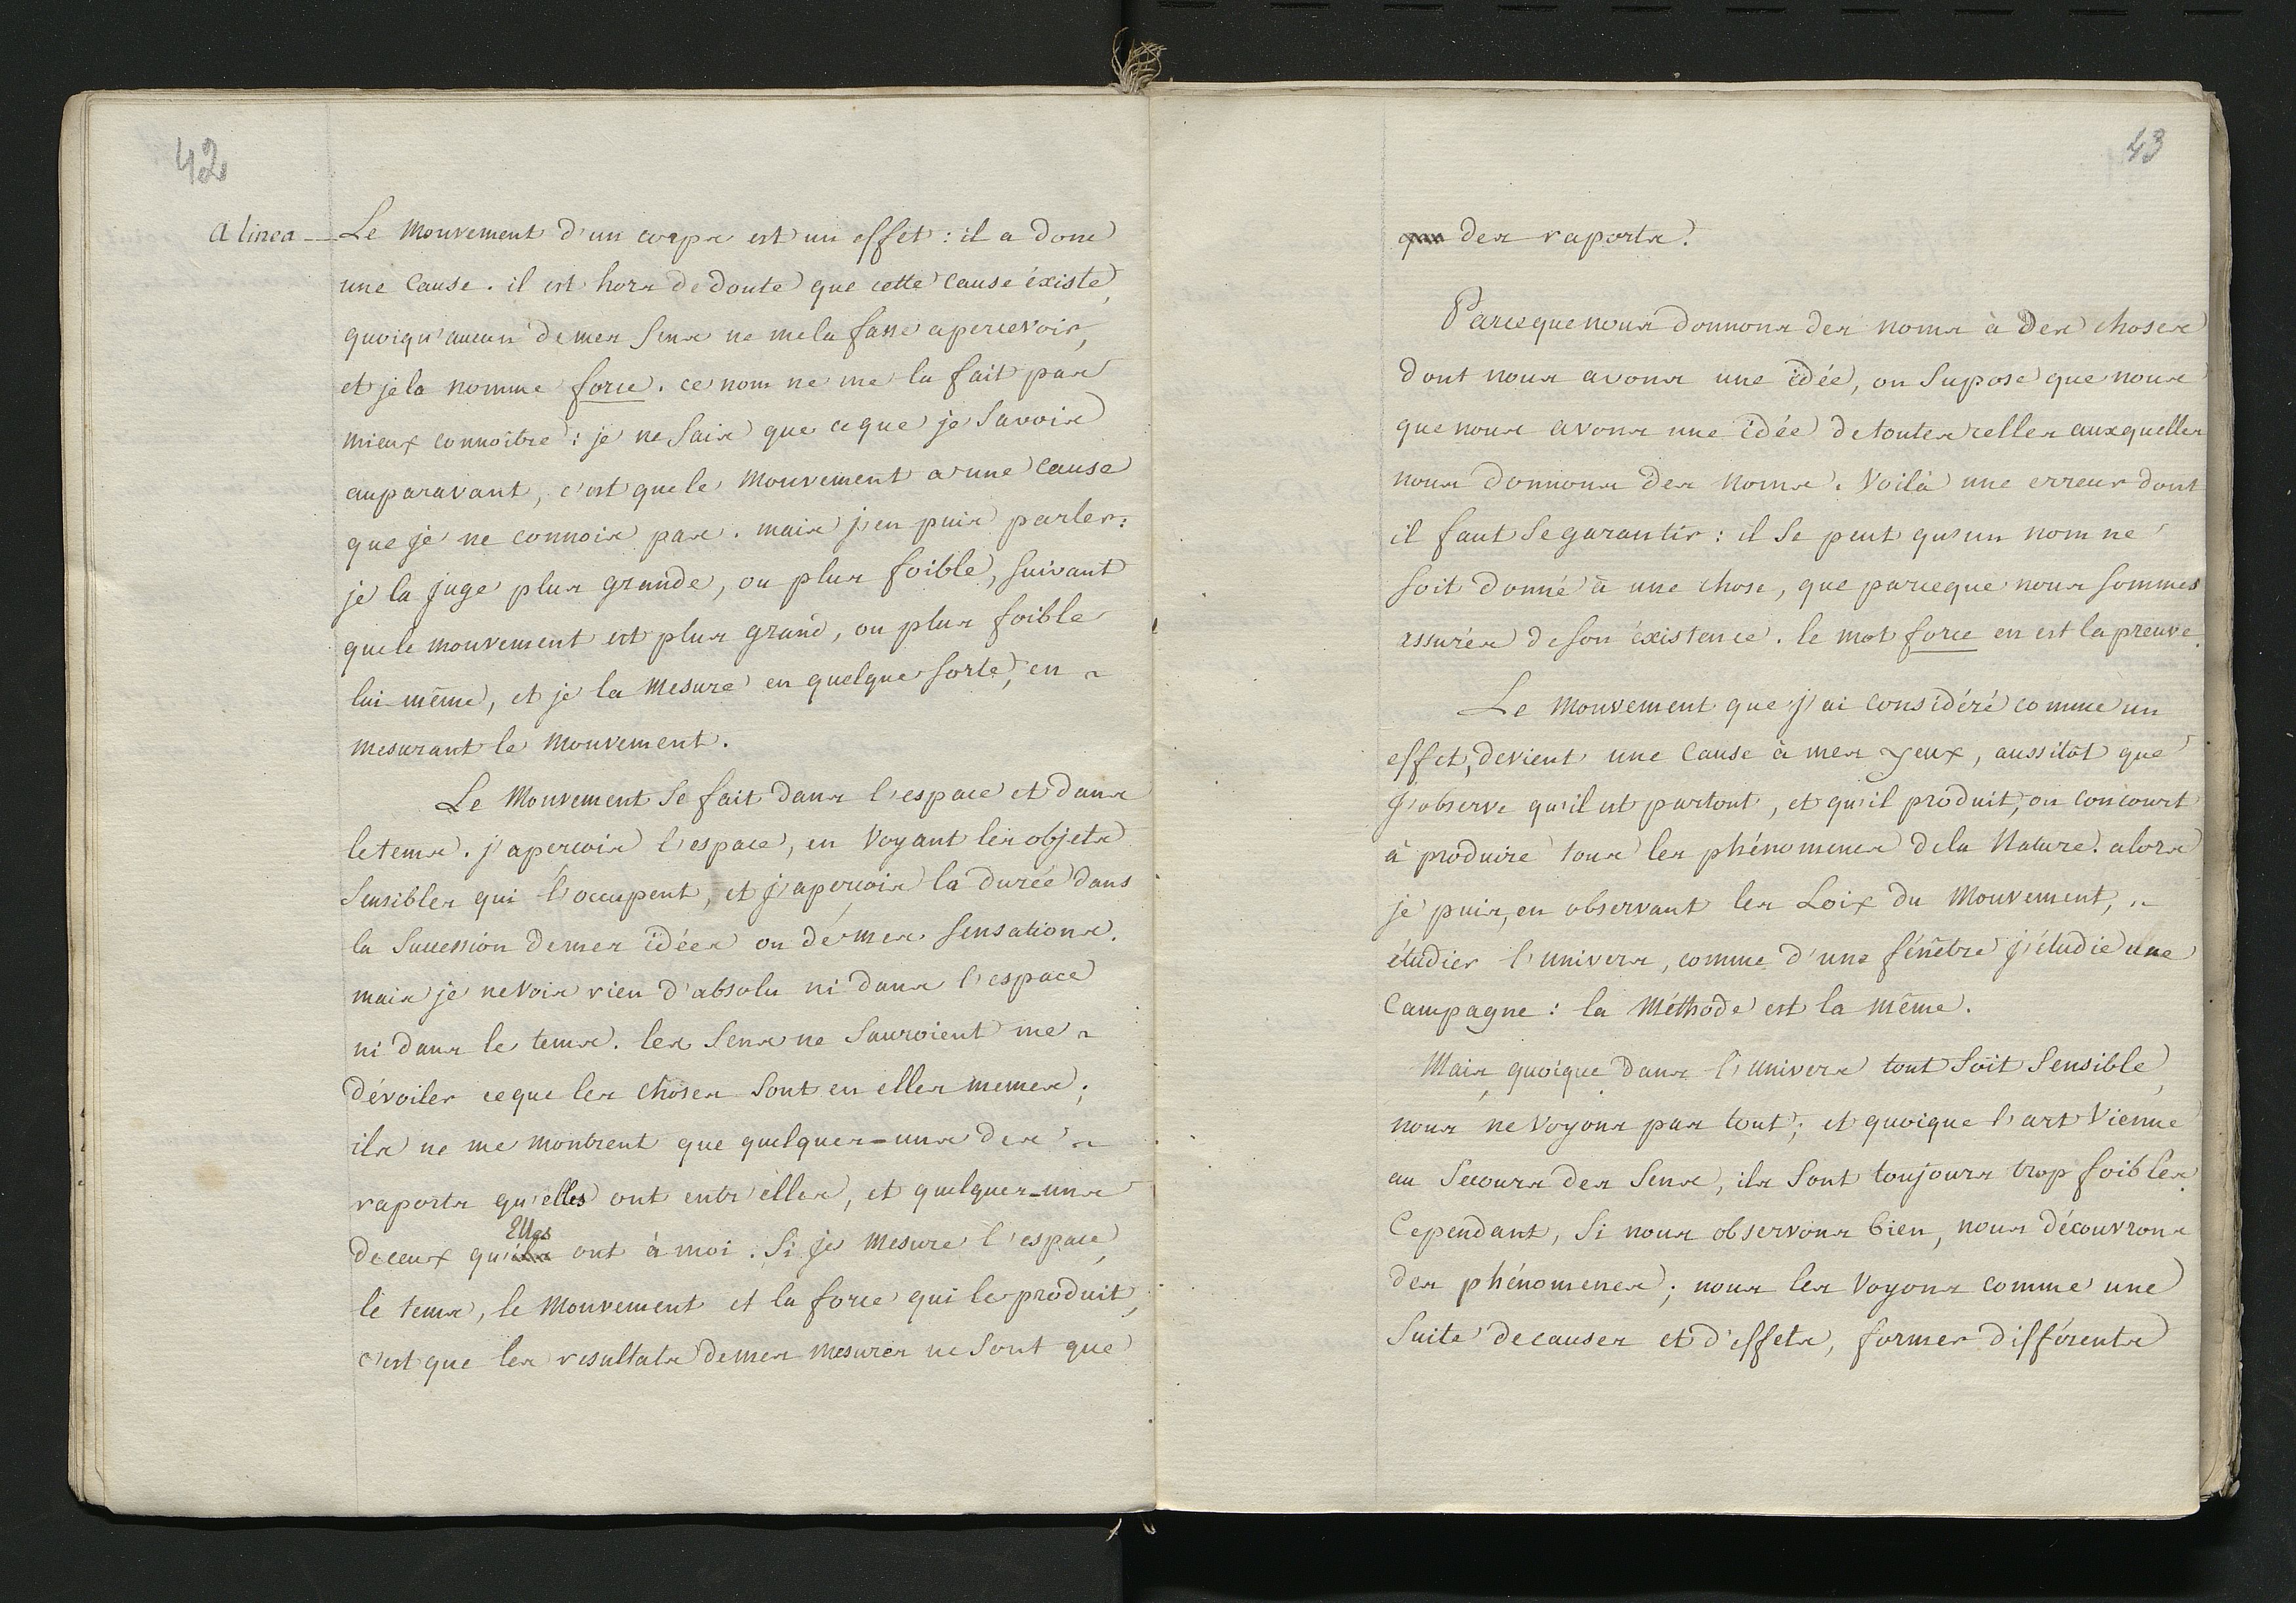 42
A linea — Le Mouvement d'un corps est un effet : il a donc
une Cause. il est hors de doute que cette Cause éxiste,
quoiqu'aucun de mes sens ne me la fasse apercevoir,
et je la nomme force. ce nom ne me la fait pas
mieux connoître : je ne sais que ce que je savois
auparavant, c'est que le Mouvement a une Cause
que je ne connois pas. mais j'en puis parler :
je la juge plus grande, ou plus foible, suivant
que le mouvement est plus grand, ou plus foible
lui-même, et je la mesure en quelque sorte, en
mesurant le Mouvement.
Le Mouvement se fait dans l'espace et dans
le tems. j'apercois l'espace, en voyant les objets
sensibles qui l'occupent, et j'apercois la durée dans
la succession de mes idées ou de mes sensations.
mais je ne vois rien d'absolu ni dans l'espace
ni dans le tems. les sens ne sauroient me
dévoiler ce que les choses sont en elles memes ;
ils ne me montrent que quelques-uns des
raports qu'elles ont entr'elles, et quelques-uns
Elles
de ceux qu'ils ont à moi. Si je mesure l'espace,
le tems, le Mouvement et la force qui le produit,
c'est que les resultats de mes mesures ne sont que
43
que des raports.
Parceque nous donnons des noms à des choses
dont nous avons une idée, on supose que nous
que nous avons une idée de toutes celles auxquelles
nous donnons des Noms. Voilà une erreur dont
il faut se garantir : il se peut qu'un nom ne
soit donné à une chose, que parceque nous sommes
assurés de son éxistence. le mot force en est la preuve.
Le Mouvement que j'ai considéré comme un
effet, devient une Cause à mes yeux, aussitôt que
j'observe qu'il est partout, et qu'il produit, ou concourt
à produire tous les phénomenes de la Nature. alors
je puis, en observant les Loix du Mouvement,
étudier l'univers, comme d'une fénêtre j'étudie une
Campagne : la Méthode est la même.
Mais, quoique dans l'univers tout soit sensible,
nous ne voyons pas tout ; et quoique l'art vienne
au secours des sens, ils sont toujours trop foibles.
Cependant, si nous observons bien, nous découvrons
des phénomenes ; nous les voyons comme une
suite de causes et d'effets, former différents